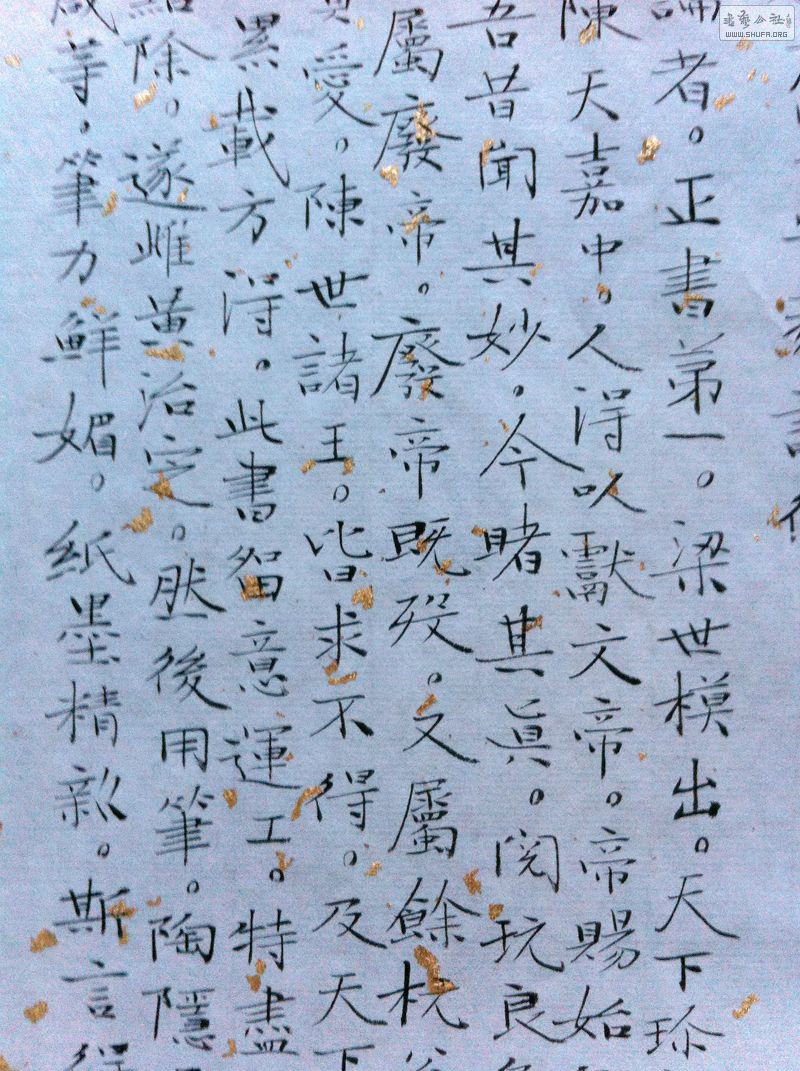 論者。正書第一。梁世模出。天下珎
陳天嘉中。人淂以獻文帝。帝賜始
吾昔聞其妙。今睹其眞。閱玩良
屬廢帝。廢帝既歿。又屬餘杭公
愛。陳世諸王。皆求不得。及天下
累載方淂。此書留意運工。特盡
除。遂雌黃治定。然後用筆。陶隱
等。筆力鮮媚。紙墨精新。斯言得
書藝公社
WWW.SHUFA.ORG